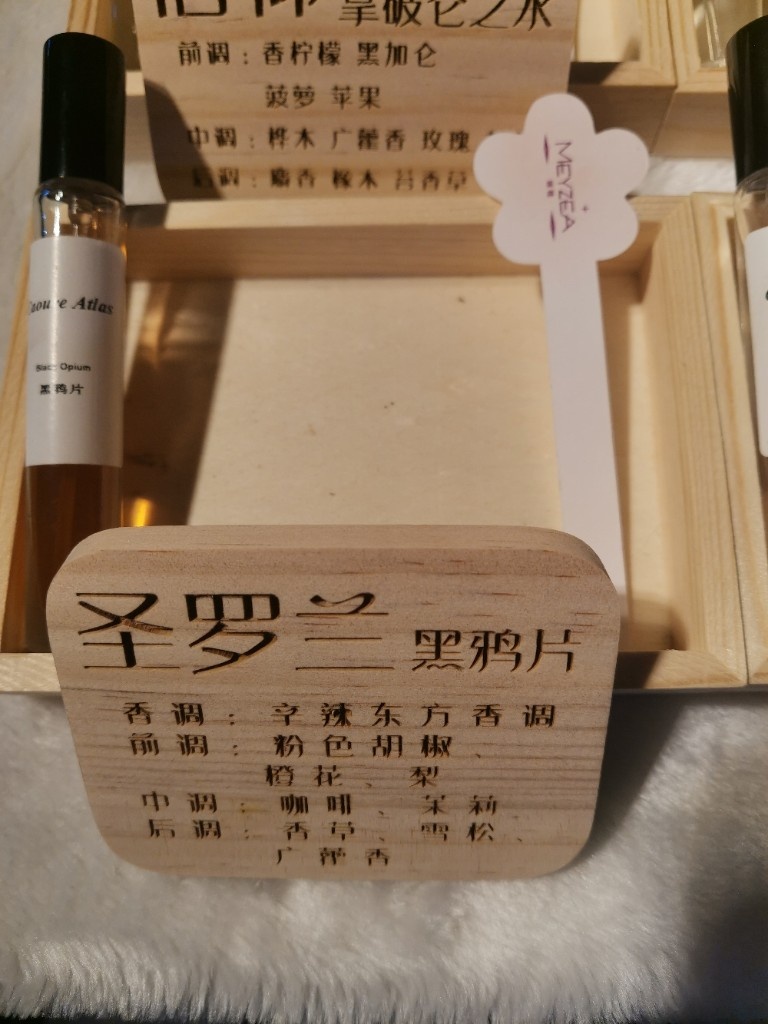 拿破仑之水
前调：香柠檬 黑加仑
菠萝 苹果
中调：桦木 广藿香 玫瑰
后调：麝香 橡木 苔香草
MEYZEA
Atlas
Black Opium
黑鸦片
圣罗兰 黑鸦片
香调：辛辣东方香调
前调：粉色胡椒、
橙花、梨
中调：咖啡、茉莉
后调：香草、雪松、
广藿香